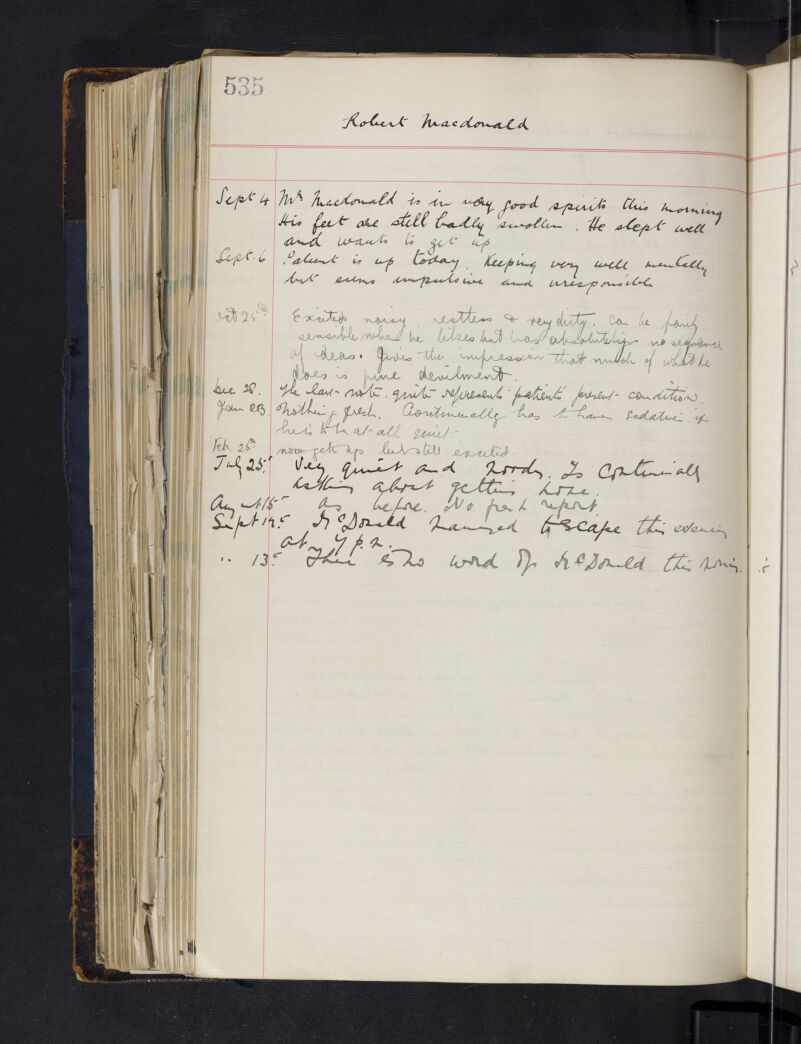 535
Robert Macdonald
Sept 4 Mr Macdonald is in very good spirits this morning
His feet are still badly swollen. He slept well
and wants to get up.
Sept. 6 Patient is up today. Keeping very well mentally
but seems impulsive and irresponsible
Oct 25th Excited noisy restless & very dirty. Can be fairly
sensible when he likes but has absolutely no sequence
of ideas. Gives the impression that much of what he
does is pure devilment.
Dec 28. The last note quite represents patient's present condition.
Jan 28. Nothing fresh. Continually has to have sedatives if
he is to be at all quiet
Feb. 26th now gets up but still excited.
July 25th Very quiet and moody. Is continually
asking about getting home.
August 15th as before. No fresh report
Sept 12th McDonald managed to escape this evening
at 7 p.m.
" 13th There is no word of McDonald this morning.